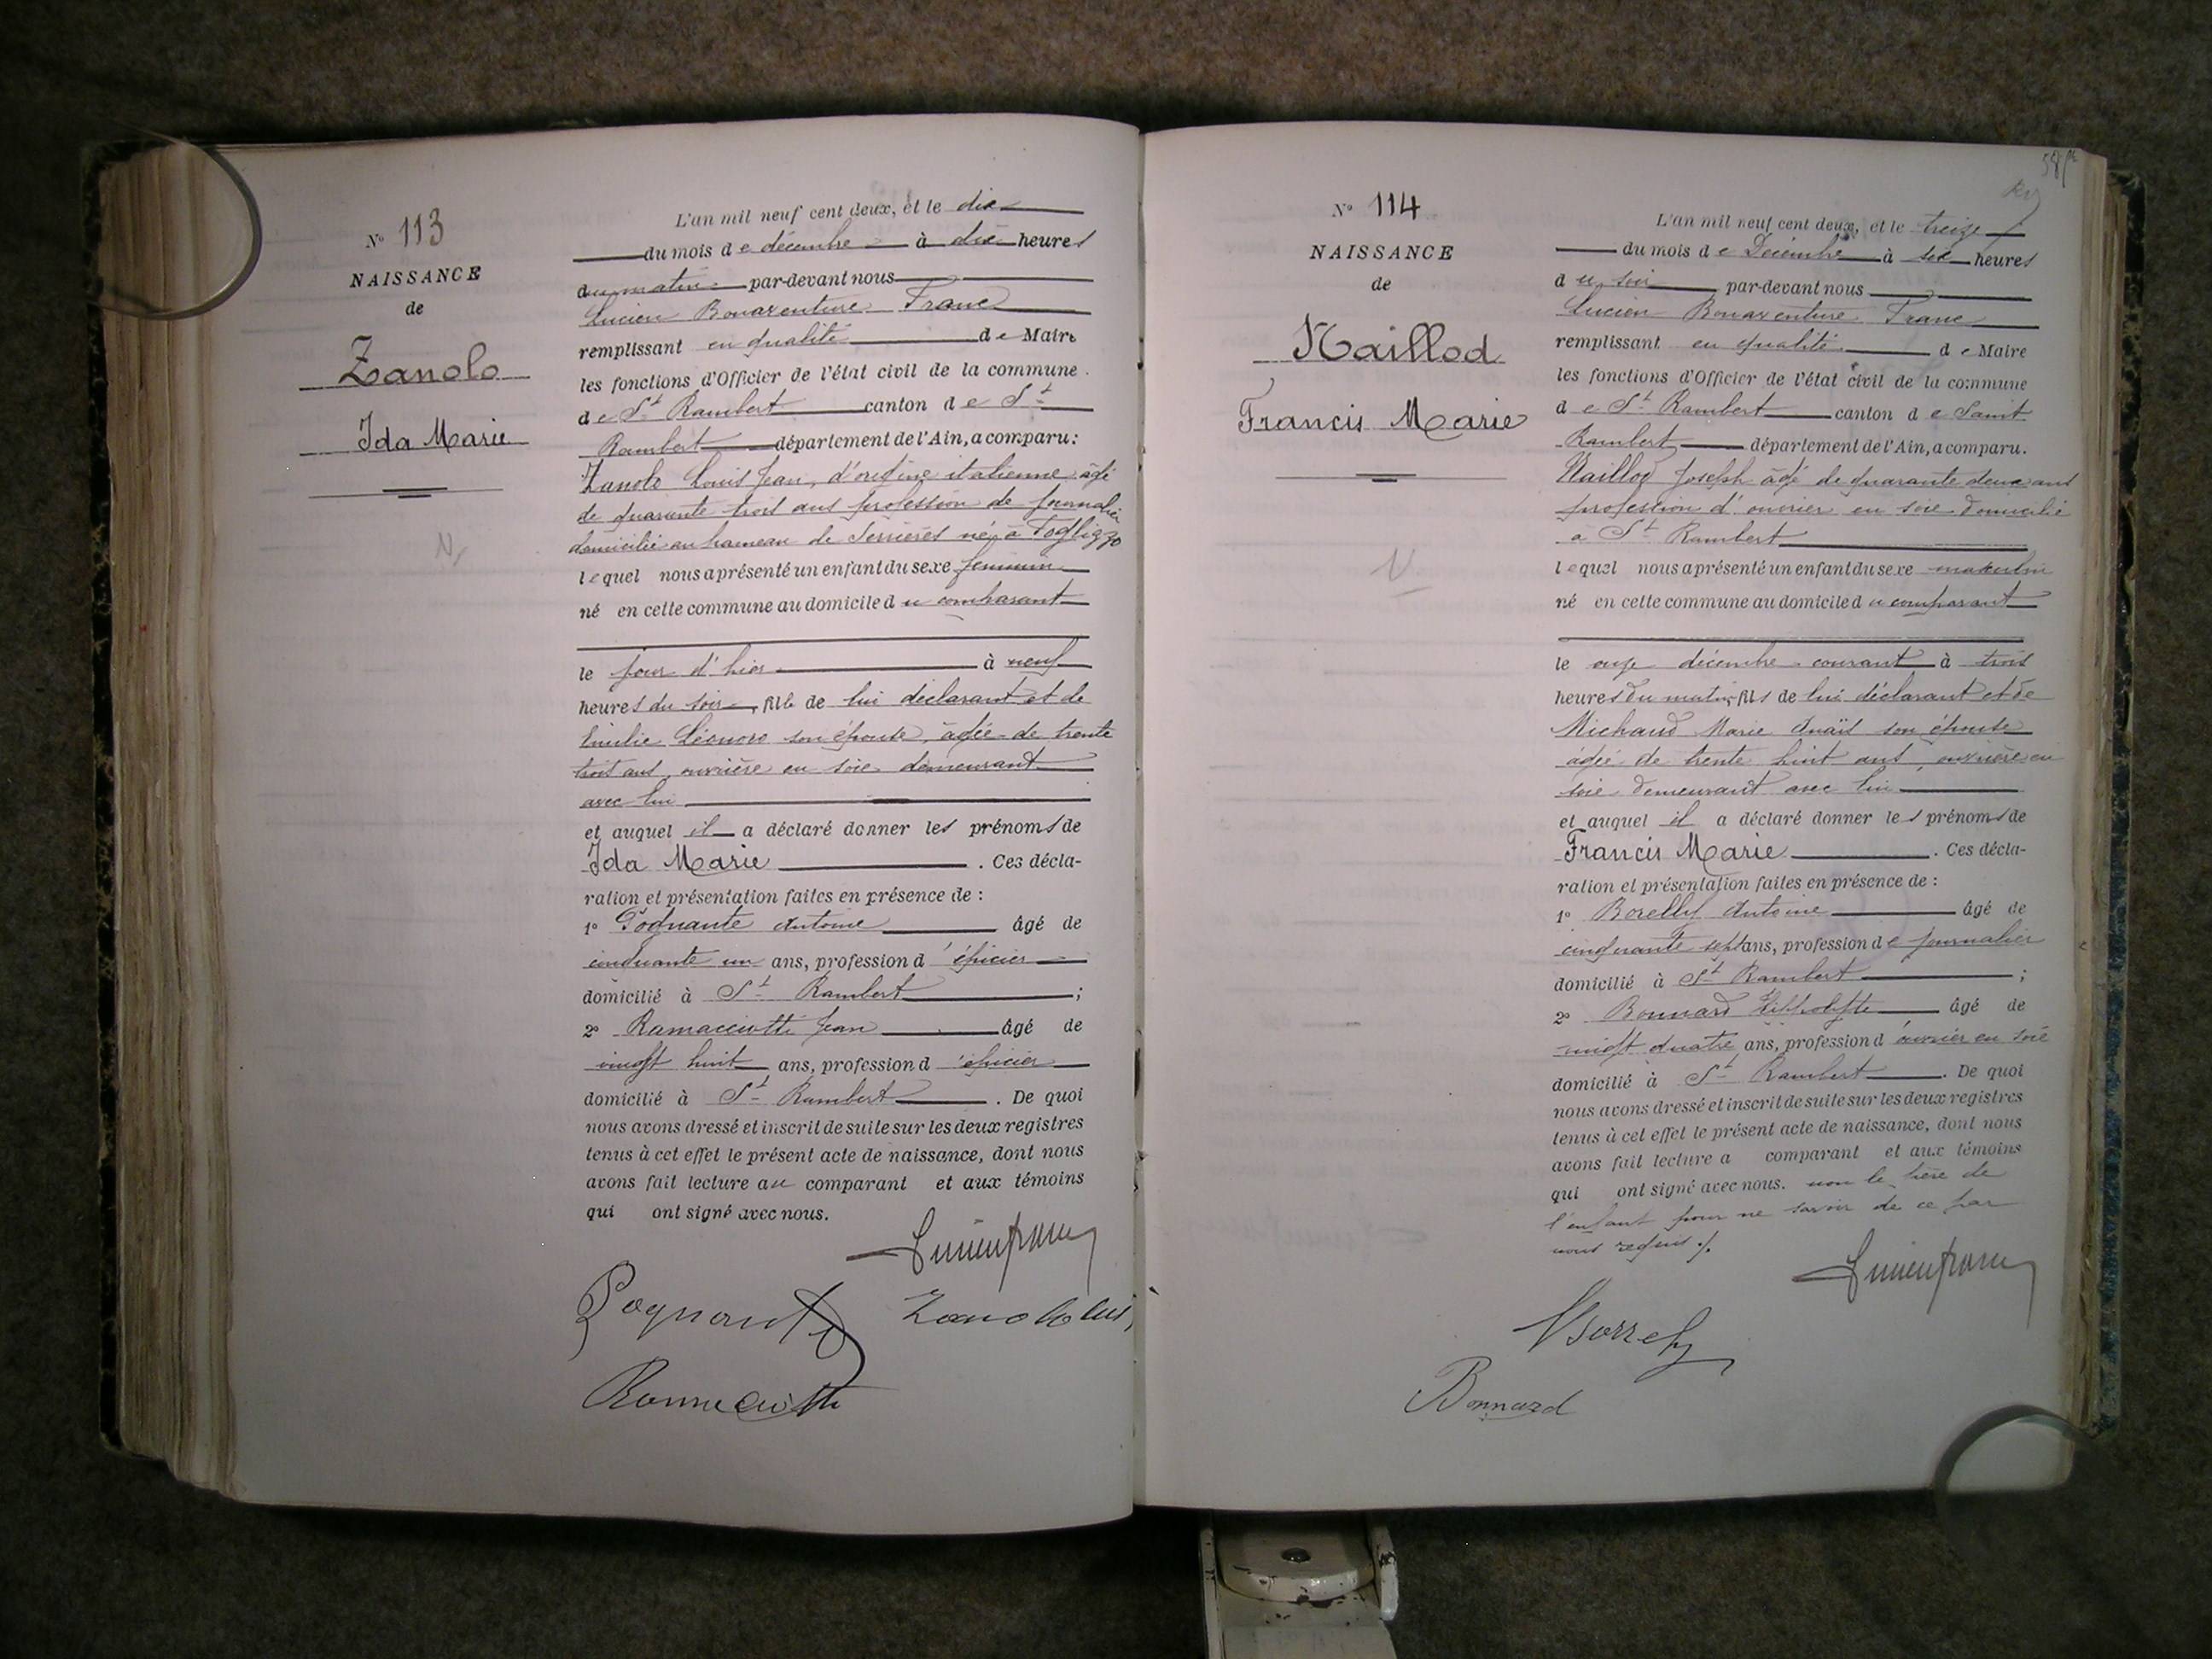 N° 113
NAISSANCE
de
Zanolo
Ida Marie
L'an mil neuf cent deux, et le dix
du mois de décembre à dix heures
du matin par-devant nous
Lucien Bonaventure Franc
remplissant en qualité de Maire
les fonctions d'Officier de l'état civil de la commune
de St Rambert canton de St
Rambert département de l'Ain, a comparu:
Zanolo Louis Jean, d'origine italienne, âgé
de quarante trois ans profession de journalier
domicilié au hameau de Serrières né à Foglizzo
lequel nous a présenté un enfant du sexe féminin
né en cette commune au domicile du comparant
le jour d'hier à neuf
heures du soir, fille de lui déclarant et de
Emilie Léonore son épouse, âgée de trente
trois ans, ouvrière en soie demeurant
avec lui
et auquel il a déclaré donner les prénoms de
Ida Marie. Ces décla-
ration et présentation faites en présence de :
1° Pognante Antoine âgé de
cinquante un ans, profession d'épicier
domicilié à St Rambert ;
2° Ramacciotti Jean âgé de
vingt huit ans, profession d'épicier
domicilié à St Rambert. De quoi
nous avons dressé et inscrit de suite sur les deux registres
tenus à cet effet le présent acte de naissance, dont nous
avons fait lecture au comparant et aux témoins
qui ont signé avec nous.
Lucien franc
Pognante Zanolo
Ramacciotti
N° 114
NAISSANCE
de
Naillod
Francis Marie
L'an mil neuf cent deux, et le treize
du mois de Décembre à six heures
du soir par-devant nous
Lucien Bonaventure Franc
remplissant en qualité de Maire
les fonctions d'Officier de l'état civil de la commune
de St Rambert canton de Saint
Rambert département de l'Ain, a comparu.
Naillod Joseph âgé de quarante deux ans
profession d'ouvrier en soie domicilié
à St Rambert
lequel nous a présenté un enfant du sexe masculin
né en cette commune au domicile du comparant
le onze décembre courant à trois
heures du matin, fils de lui déclarant et de
Michaud Marie Anaïs son épouse
âgée de trente huit ans, ouvrière en
soie demeurant avec lui
et auquel il a déclaré donner les prénoms de
Francis Marie. Ces décla-
ration et présentation faites en présence de :
1° Borelly Antoine âgé de
cinquante sept ans, profession de journalier
domicilié à St Rambert ;
2° Bonnard Hippolyte âgé de
vingt quatre ans, profession d'ouvrier en soie
domicilié à St Rambert. De quoi
nous avons dressé et inscrit de suite sur les deux registres
tenus à cet effet le présent acte de naissance, dont nous
avons fait lecture a comparant et aux témoins
qui ont signé avec nous. non le père de
l'enfant pour ne savoir de ce par
nous requis ./.
Lucien franc
Borrely
Bonnard